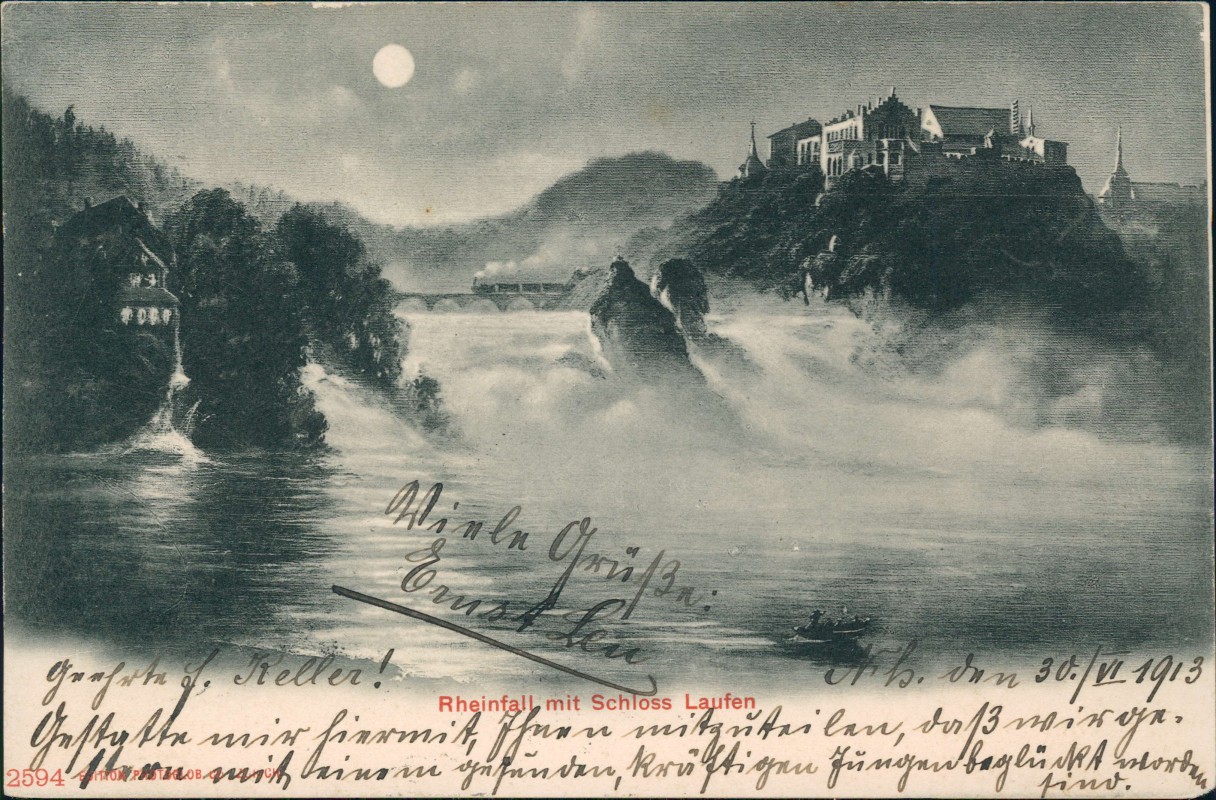 Viele Grüße:
Ernst Leu
Geehrte F. Keller!
Nh. den 30./VI 1913
Rheinfall mit Schloss Laufen
Gestatte mir hiermit, Ihnen mitzuteilen, daß wir ge-
stern mit einem gesunden, kräftigen Jungen beglückt worden
sind.
2594 EDITION PHOTOGLOB